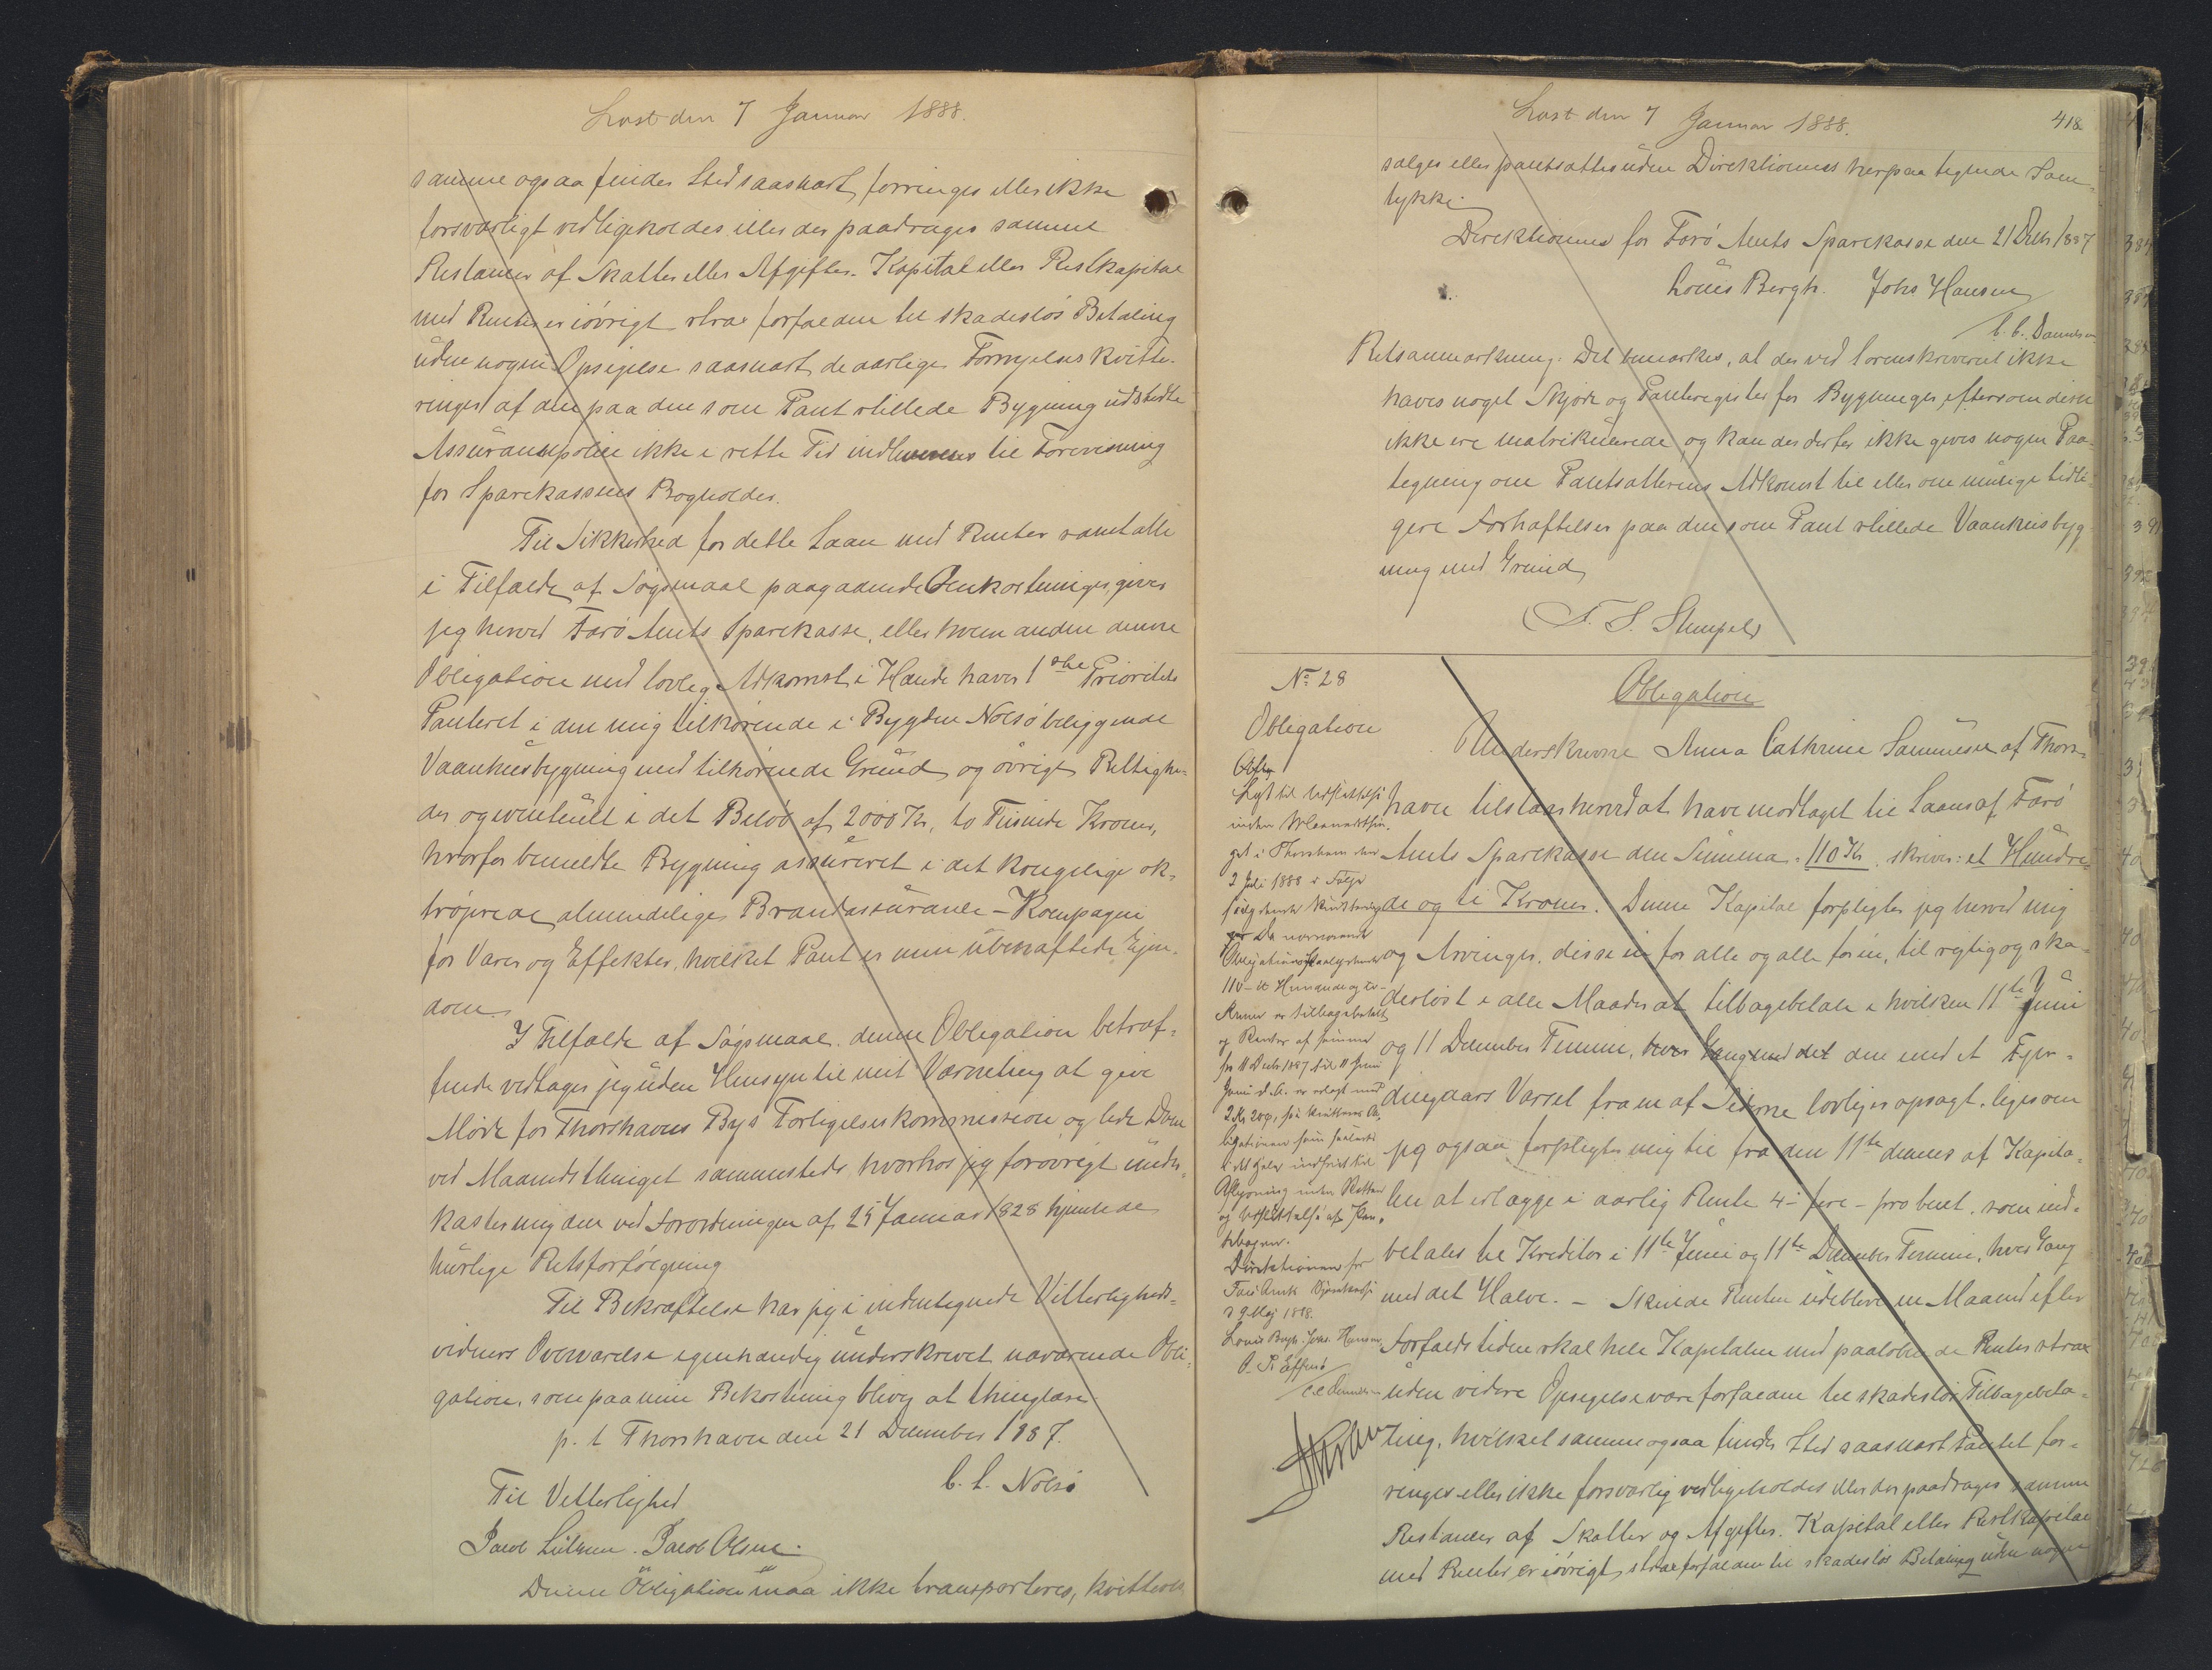 Læst den 7 Januar 1888.
samme ogsaa finder Sted saasnart, forringes eller ikke
forsvarligt vedligeholdes eller der paadrages samme
Restancer af Skatter eller Afgifter. Kapital eller Restkapital
med Renter er iøvrigt strax forfalden til skadesløs Betaling
uden nogen Opsigelse saasnart de aarlige Fornyelses kvitte-
ringer af den paa den som Pant stillede Bygning udstedte
Assurancepolice ikke i rette Tid indleveres til Forevisning
for Sparekassens Bogholder.
Til Sikkerhed for dette Laan med Renter samt alle
i Tilfælde af Søgsmaal paagaaende Omkostninger, giver
jeg herved Færø Amts Sparekasse, eller hvem anden denne
Obligation med lovlig Adkomst i Hænde haver 1ste Prioritets
Panteret i den mig tilhørende i Bygden Nolsø beliggende
Vaanhusbygning med tilhørende Grund og øvrige Rettighe-
der og eventuelt i det Beløb af 2000 Kr, to Tusinde Kroner,
hvorfor bemeldte Bygning assureret i det kongelige ok-
trojerede almindelige Brandassurance-Kompagni
for Varer og Effekter, hvilket Pant er min ubehæftede Ejen-
dom.
I Tilfælde af Søgsmaal denne Obligation betræf-
fende vedtager jeg uden Hensyn til mit Værneting at give
Møde for Thorshavns Bys Forligelseskommission og lide Dom
ved Maanedsthinget sammesteds, hvorhos jeg forøvrigt under-
kaster mig den ved Forordningen af 25 Januar 1828 hjemlede
hurtige Retsforfølgning
Til Bekræftelse har jeg i undertegnede Vitterligheds-
vidners Overværelse egenhændig underskrevet nærværende Obli-
gation, som paa min Bekostning bliver at thinglæse.
p. t. Thorshavn den 21 December 1887.
C. L. Nolsø
Til Vitterlighed
Jacob Lützen. Jacob Olsen.
Denne Obligation maa ikke transporteres, kvitteres
Læst den 7 Januar 1888.
418
sælges eller pantsættes uden Direktionens herpaa tegnede Sam-
tykke.
Direktionen for Færø Amts Sparekasse den 21 Decbr 1887
Louis Bergh. Johs Hansen
C. C. Danielsen
Retsanmærkning: Det bemærkes, at der ved Sorenskriveriet ikke
haves noget Skjøde og Panteregister for Bygninger, eftersom disse
ikke ere matrikulerede, og kan der derfor ikke gives nogen Paa-
tegning om Pantsætterens Adkomst til eller om mulige tidli-
gere Forhæftelser paa den som Pant stillede Vaanhusbyg-
ning med Grund
No 28
Obligation
Obligation
Underskrevne Anna Cathrine Samuelsen af Thors-
havn tilstaar herved at have modtaget til Laans af Færø
Amts Sparekasse den Summa 110 Kr, skriver: et Hundre-
de og ti Kroner. Denne Kapital forpligter jeg herved mig
og Arvinger, disse en for alle og alle for en, til rigtig og ska-
desløst i alle Maader at tilbagebetale i hvilken 11te Juni
og 11 December Termin, hver Gang med det den med et Fjer-
dingaars Varsel fra en af Siderne lovligen opsagt, ligesom
jeg ogsaa forpligter mig til fra den 11te dennes af Kapita-
len at erlægge i aarlig Rente 4- fire - pro Cent, som ind-
betales til Kreditor i 11te Juni og 11te December Termin, hver Gang
med det Halve. - Skulde Renten udeblive en Maaned efter
Forfaldstiden skal hele Kapitalen med paaløbende Renter strax
uden videre Opsigelse være forfalden til skadesløs Tilbagebeta-
ling, hvilket samme ogsaa finder Sted saasnart Pantet for-
ringes eller ikke forsvarlig vedligeholdes eller der paadrages samme
Restancer af Skatter og Afgifter. Kapital eller Restkapital
med Renter er iøvrigt strax forfalden til skadesløs Betaling uden nogen
Aflyst
Lyst til Udslettelse
inden Maanedsthin-
get i Thorshavn den
2 Juli 1888
nærværende
Obligations
110 - et Hundrede og ti -
Kroner er tilbagebetalt
og Renter af samme
fra 11 Decbr 1887 til 11 Juni
2 Kr 20
ligationen som saaledes
i det Hele indfriet til
Aflysning inden Retten
og Udslettelse af Pan-
tebogen.
Direktionen for
Færø Amts Sparekasse
Louis Bergh. Johs. Hansen
C C Danielsen